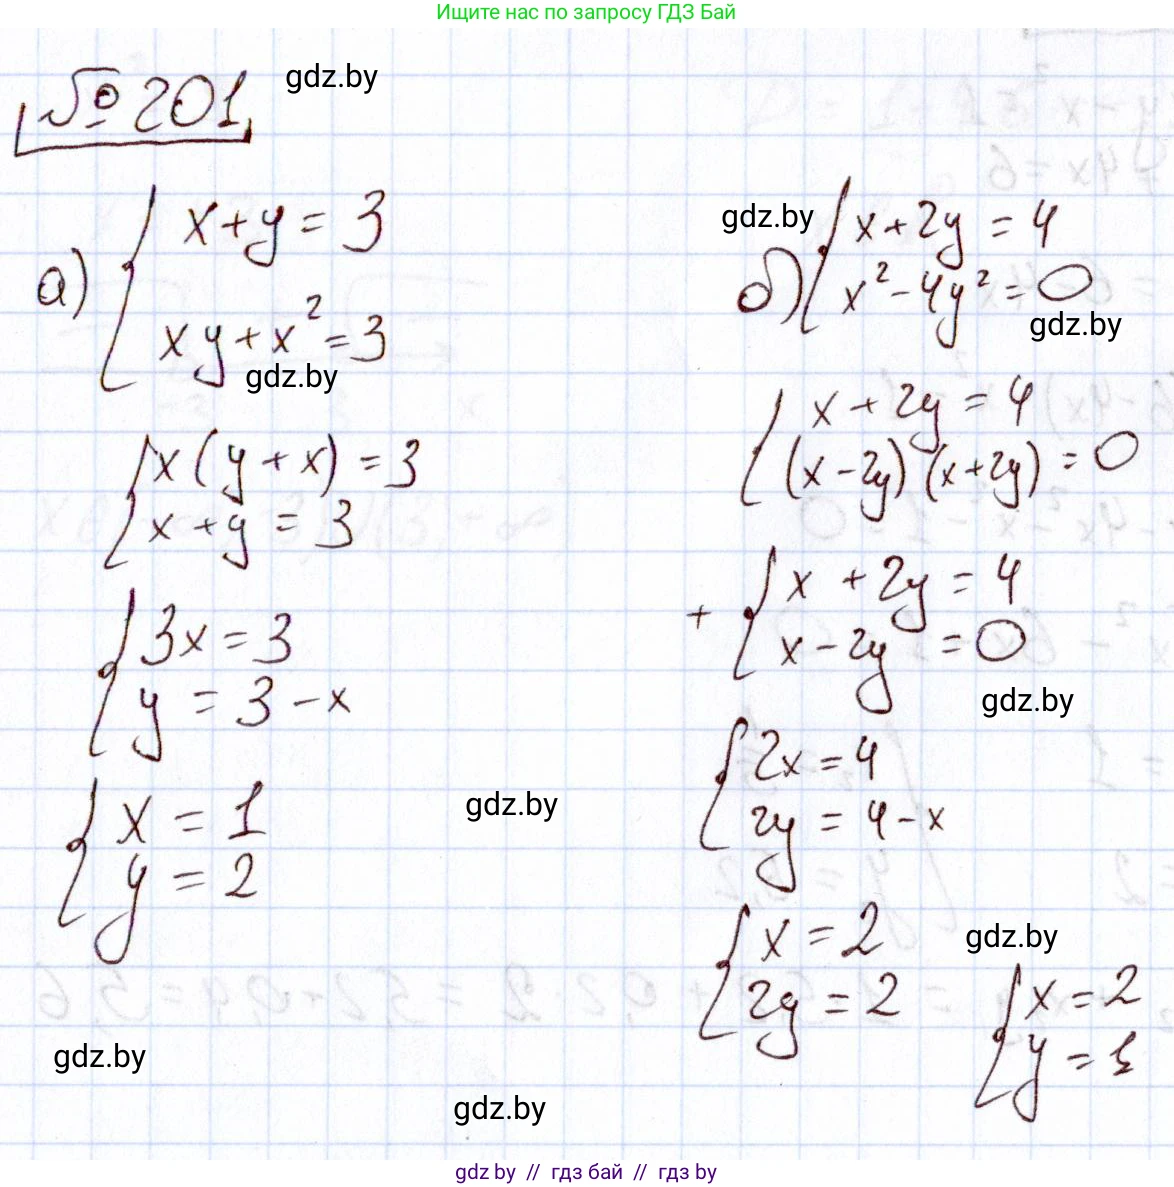 Ищите нас по запросу ГДЗ Бай
№201 gdz.by
а)
x+y=3
xy+x²=3
gdz.by
x(y+x)=3
x+y=3
3x=3
y=3-x
x=1
y=2
gdz.by
б)
x+2y=4
x²-4y²=0
gdz.by
x+2y=4
(x-2y)(x+2y)=0
+
x+2y=4
x-2y=0
gdz.by
2x=4
2y=4-x
gdz.by
x=2
2y=2
gdz.by
x=2
y=1
gdz.by
gdz.by
gdz.by // гдз бай // gdz.by